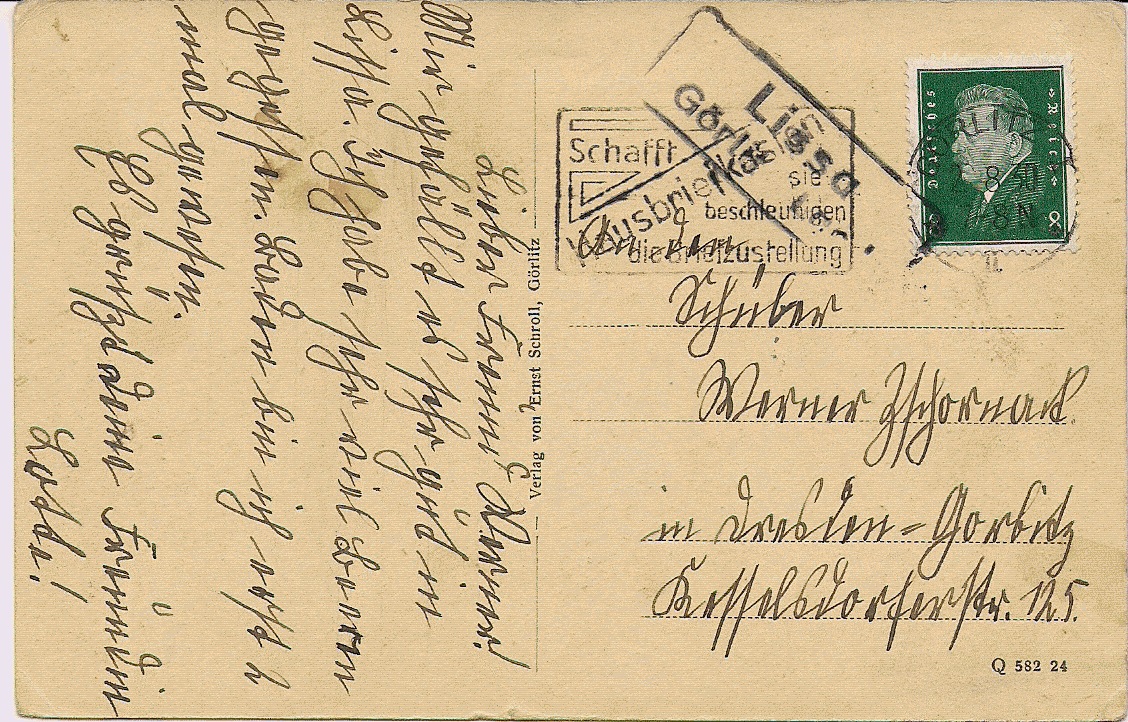 Lieber Freund Werner!
Mir gefällt es sehr gut in
Lissa. Ich habe sehr viel Beeren
gegessen. Baden bin ich erst 2
mal gewesen.
Es grüßt deine Freundin
Lotte!
Verlag von Ernst Schroll, Görlitz
Schafft
Hausbriefkästen
sie
beschleunigen
die Briefzustellung
Lissa
Görlitz
Deutsches Reich
8
GÖRLITZ
8.30
8 N
An den
Schüler
Werner Zschornack
in Dresden=Gorbitz
Kesselsdorferstr. 125.
Q 582 24